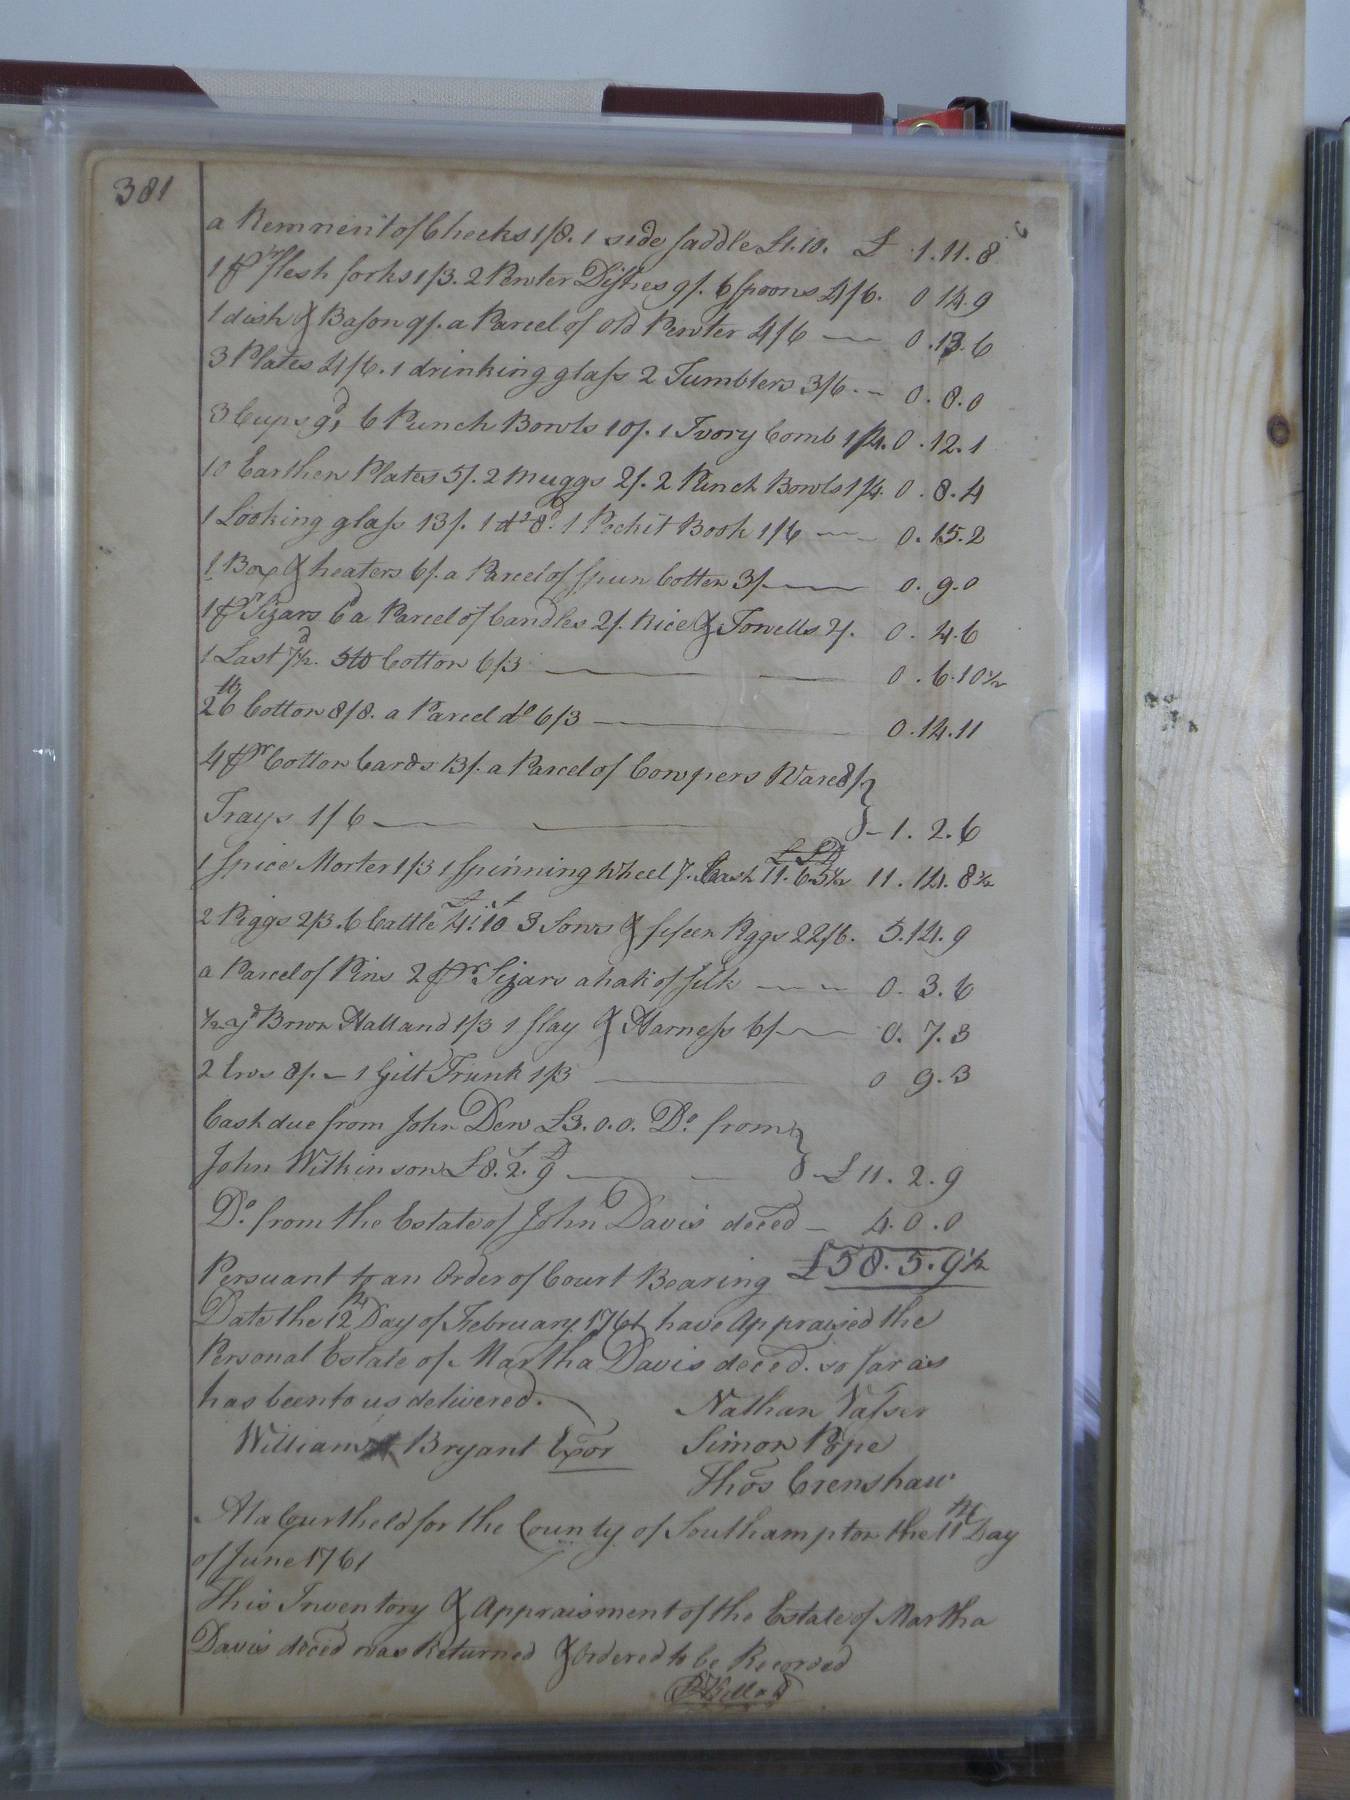 381
a Remnent of Checks 1/8. 1 side saddle £1.10. £ 1.11.8
1 pr flesh forks 1/3. 2 Pewter Dishes 9/. 6 Spoons 4/6. 0 14.9
1 dish & Bason 9/. a Parcel of old Pewter 4/6 — 0.13.6
3 Plates 4/6. 1 drinking glass 2 Tumblers 3/6. — 0.8.0
3 Cups 9d, 6 Punch Bowls 10/. 1 Ivory Comb 1/4. 0.12.1
10 Earthen Plates 5/. 2 Muggs 2/. 2 Punch Bowls 1/4 0.8.4
1 Looking glass 13/. 1 do 8d. 1 Pockit Book 1/6 — 0.15.2
1 Box & heaters 6/. a Parcel of spun Cotten 3/. — 0.9.0
1 pr Sizars 6d a Parcel of Candles 2/. Rice & Towells 2/. 0.4.6
1 Last 7½d. 5 lb Cotton 6/3 — 0.6.10½
26 lb Cotton 8/8. a Parcel do 6/3 — 0.14.11
4 pr Cotton Cards 13/. a Parcel of Cowpers Ware 8/}
Trays 1/6 — — } – 1.2.6
1 Spice Morter 1/3 1 Spinning Wheel 7/. Cash £ S D 11.6.5½ 11.14.8½
2 Piggs 2/3. 6 Cattle £4.10 3 Sows & fifeen Piggs 22/6. 5.14.9
a Parcel of Pins 2 pr Sizars a hank of Silk — 0.3.6
½ yd Brwn Halland 1/3 1 Slay & Harness 6/. — 0.7.3
2 Ews 8/. — 1 Gilt Trunk 1/3 — 0 9.3
Cash due from John Dew £3.0.0. Do. from}
John Wilkinson £8.2.9 — — } – £11.2.9
Do. from the Estate of John Davis deced — 4.0.0
Persuant to an Order of Court Bearing £58.5.9½
Date the 12th Day of February 1761 have Appraised the
Personal Estate of Martha Davis deced. so far as
has been to us delivered.
Nathan Vasser
William Bryant Exor Simon Pope
Thos Crenshaw
At a Court held for the County of Southampton the 11th Day
of June 1761
This Inventory & Appraisment of the Estate of Martha
Davis deced was Returned & Ordered to be Recorded